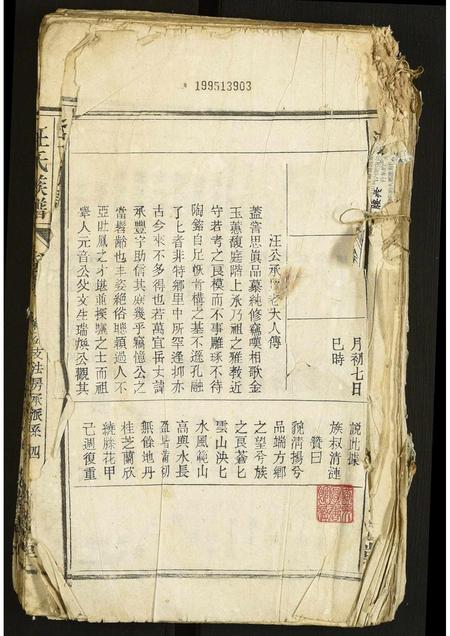 199513903
月初七日
巳時
汪公承
大人傳
蓋嘗思真品慕純修竊嘆相歌金
玉蕙馥庭階上承乃祖之雅教近
守若考之良模而不事雕琢不待
陶鎔自足恢肯構之基不遜孔融
了七者非特鄉里中所罕逢抑亦
古今來不多得也若萬宜岳丈諱
承豐字助信其庶幾乎竊憶公之
當髫齡也丰姿絕俗聰穎過人不
亞吐鳳之才堪並探驪之士而祖
舉人元音公父文生瑞煥公觀其
說此據
族叔清漣
贊曰
貌清揚兮
品端方鄉
之望兮族
之良蒼匕
雲山泱匕
水風範山
高與水長
盈堦蘭初
無餘地丹
桂芝蘭欣
繞膝花甲
己週復重
汪氏族譜
支法房承派系
四